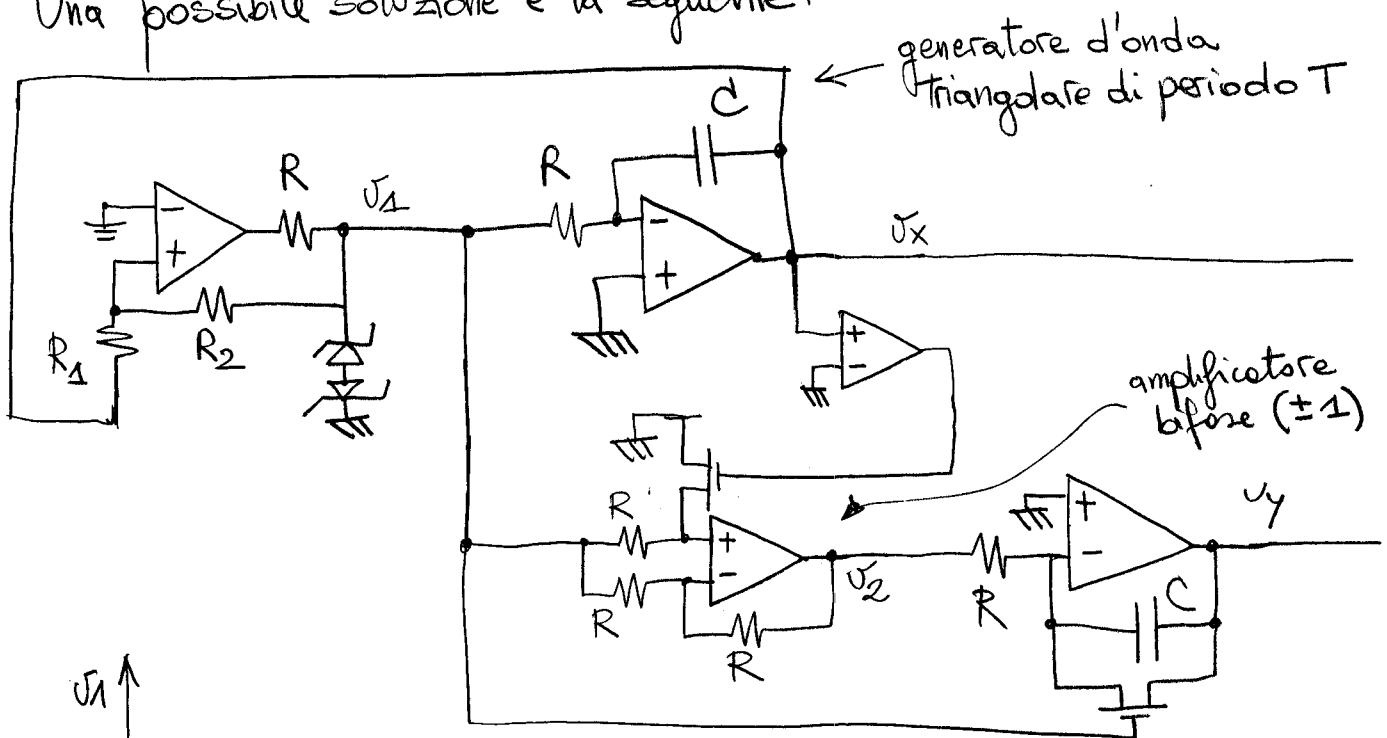 Una possibile soluzione è la seguente:
generatore d'onda
triangolare di periodo T
C
R
v1
R
-
+
-
+
vx
R2
R1
+
-
amplificatore
bifase (±1)
R
+
-
v2
R
R
R
+
-
vy
C
v1